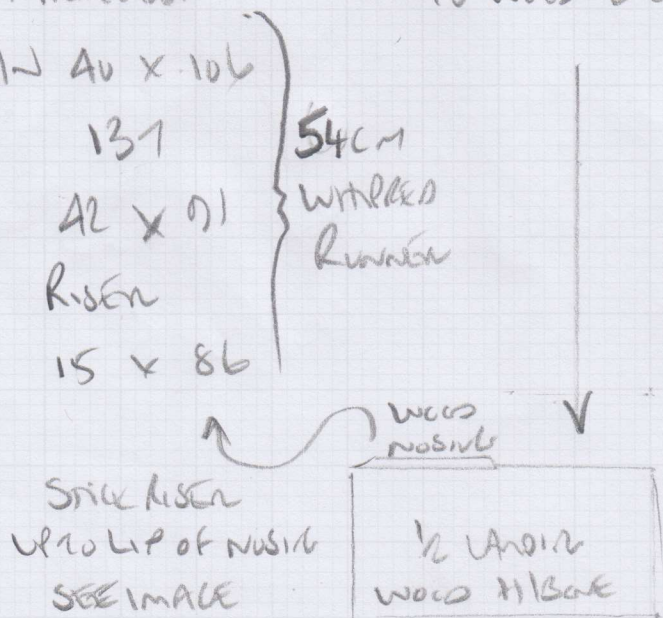 IN 40 x 106
137
42 x 91
RISER
15 x 86
54CM
WHIPPED
RUNNER
WOOD
NOSING
STICK RISER
UP TO LIP OF NOSING
SEE IMAGE
1/2 LANDING
WOOD H/BONE